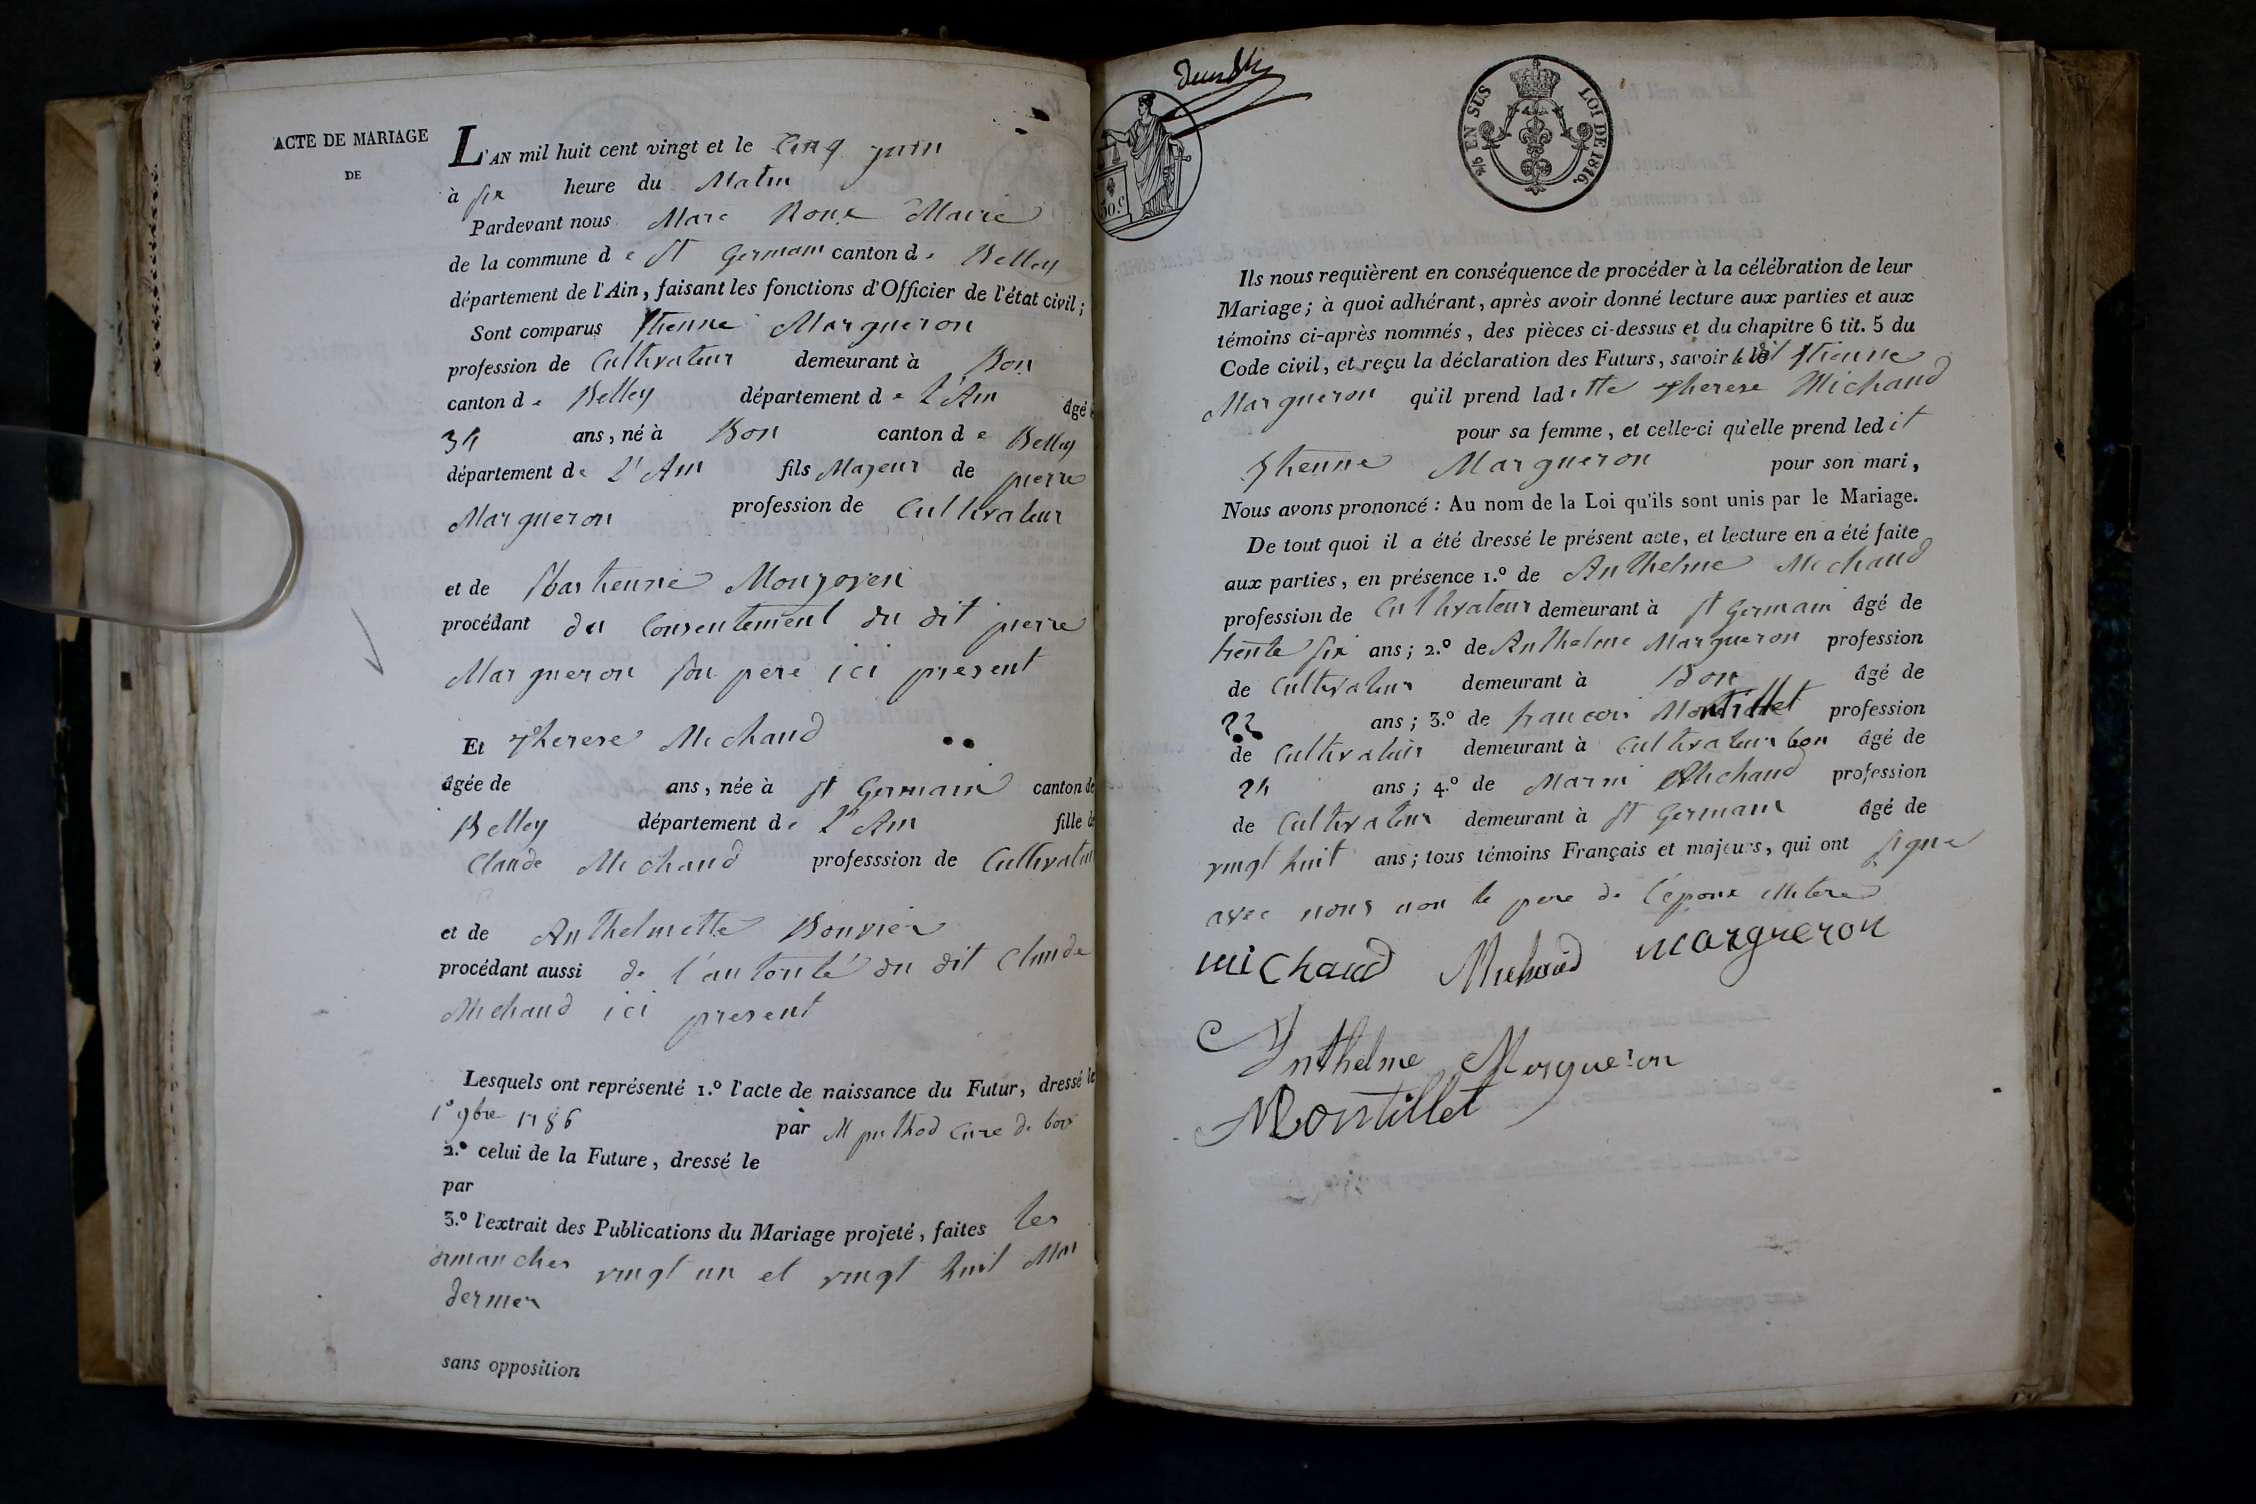 ACTE DE MARIAGE
DE
L'AN mil huit cent vingt et le Cinq juin
à six heure du Matin
Pardevant nous Marc Roux Maire
de la commune de St Germain canton de Belley
département de l'Ain, faisant les fonctions d'Officier de l'état civil;
Sont comparus Etienne Margueron
profession de Cultivateur demeurant à Bon
canton de Belley département de L'Ain âgé
34 ans, né à Bon canton de Belley
département de L'Ain fils Majeur de pierre
Margueron profession de Cultivateur
et de
procédant du Consentement du dit pierre
Margueron son pere ici present
Et therese Michaud
âgée de ans, née à St Germain canton de
Belley département de L'Ain fille de
Claude Michaud professsion de Cultivateur
et de Anthelmette Bouvier
procédant aussi de l'autorité du dit Claude
Michaud ici present
Lesquels ont représenté 1.º l'acte de naissance du Futur, dressé le
1º 9bre 1786 par M puthod Curé de bon
2.º celui de la Future, dressé le
par
3.º l'extrait des Publications du Mariage projeté, faites les
dimanches vingt un et vingt huit Mai
dernier
sans opposition
30.c
EN SUS LOI DE 1816.
Ils nous requièrent en conséquence de procéder à la célébration de leur
Mariage; à quoi adhérant, après avoir donné lecture aux parties et aux
témoins ci-après nommés, des pièces ci-dessus et du chapitre 6 tit. 5 du
Code civil, et reçu la déclaration des Futurs, savoir ledit Etienne
Margueron qu'il prend laditte therese Michaud
pour sa femme, et celle-ci qu'elle prend ledit
Etienne Margueron pour son mari,
Nous avons prononcé : Au nom de la Loi qu'ils sont unis par le Mariage.
De tout quoi il a été dressé le présent acte, et lecture en a été faite
aux parties, en présence 1.º de Anthelme Michaud
profession de Cultivateur demeurant à St Germain âgé de
trente six ans; 2.º de Anthelme Margueron profession
de Cultivateur demeurant à Bon âgé de
22 ans; 3.º de francois Montillet profession
de Cultivateur demeurant à Cultivateur bon âgé de
24 ans; 4.º de Marin Michaud profession
de Cultivateur demeurant à St Germain âgé de
vingt huit ans; tous témoins Français et majeurs, qui ont signé
avec nous non le pere de l'epoux
michaud Michaud margueron
Anthelme Margueron
Montillet